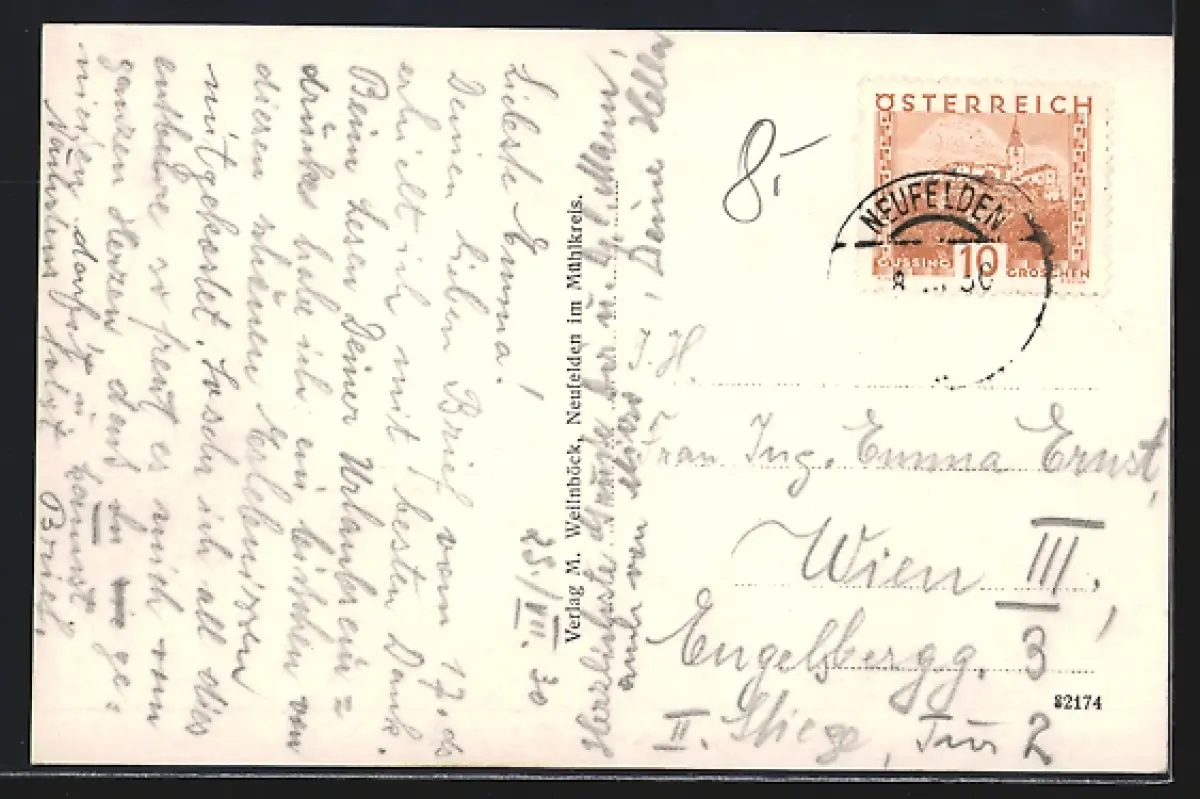 25./VIII. 30
Liebste Emma!
Deinen lieben Brief vom 17. ds
erhielt ich mit besten Dank.
Beim Lesen Deiner Urlaubsein=
drücke habe ich ein bischen von
diesen schönen Erlebnissen
mitgekostet. ich all dies
entbehre so freut es mich vom
ganzen Herzen, daß Du ge=
niesen darfst u. kannst
Nächstens folgt Brief.
Herzlichste Grüße Dir u. Mann,
auch von Deine Hella
Verlag M. Wellnböck, Neufelden im Mühlkreis.
8,-
ÖSTERREICH
GÜSSING 10 GROSCHEN
NEUFELDEN
I. H.
Frau Ing. Emma Ernst,
Wien III,
Engelsbergg. 3
II. Stiege, Tür 2
82174